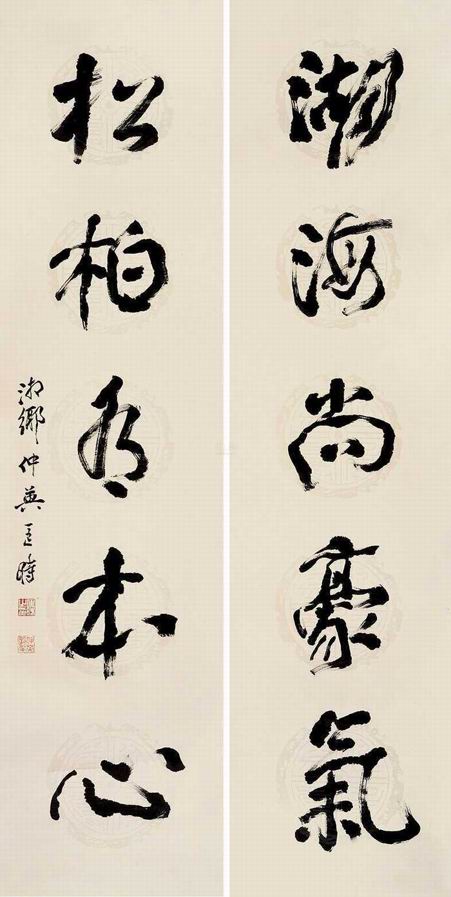 湖海尚豪氣
松柏有本心
湘鄉仲英匡時